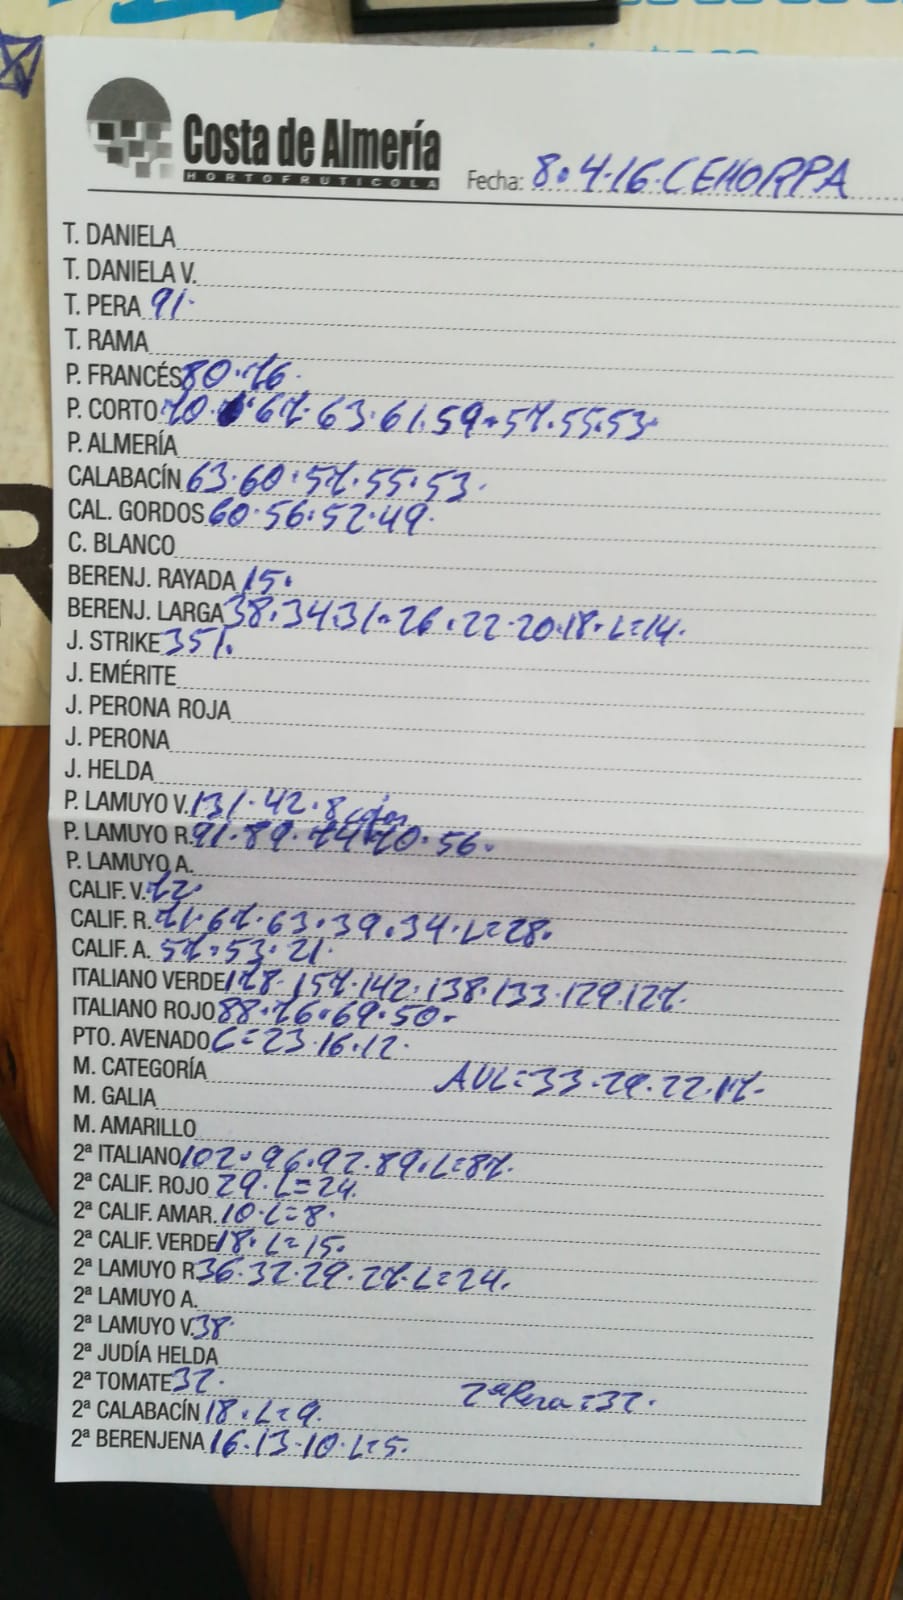 Costa de Almería
HORTOFRUTICOLA
Fecha: 8.4.16.CEHORPA
T. DANIELA
T. DANIELA V.
T. PERA 91.
T. RAMA
P. FRANCÉS 80.76.
P. CORTO 70. 67.63.61.59.57.55.53.
P. ALMERÍA
CALABACÍN 63.60.57.55.53.
CAL. GORDOS 60.56.52.49.
C. BLANCO
BERENJ. RAYADA 15.
BERENJ. LARGA 38.34.31.26.22.20.18.L=14.
J. STRIKE 351.
J. EMÉRITE
J. PERONA ROJA
J. PERONA
J. HELDA
P. LAMUYO V. 131.42.8 cajas
P. LAMUYO R. 91.89.74.70.56.
P. LAMUYO A.
CALIF. V. 72.
CALIF. R. 71.67.63.39.34.L=28.
CALIF. A. 57.53.21.
ITALIANO VERDE 178.157.142.138.133.129.127.
ITALIANO ROJO 88.76.69.50.
PTO. AVENADO C=23.16.12.
M. CATEGORÍA AVL=33.29.22.17.
M. GALIA
M. AMARILLO
2ª ITALIANO 102.96.92.89.L=87.
2ª CALIF. ROJO 29.L=24.
2ª CALIF. AMAR. 10.L=8.
2ª CALIF. VERDE 18.L=15.
2ª LAMUYO R 36.32.29.27.L=24.
2ª LAMUYO A.
2ª LAMUYO V. 38
2ª JUDÍA HELDA
2ª TOMATE 32. 2ª Pera=32.
2ª CALABACÍN 18.L=9.
2ª BERENJENA 16.13.10.L=5.